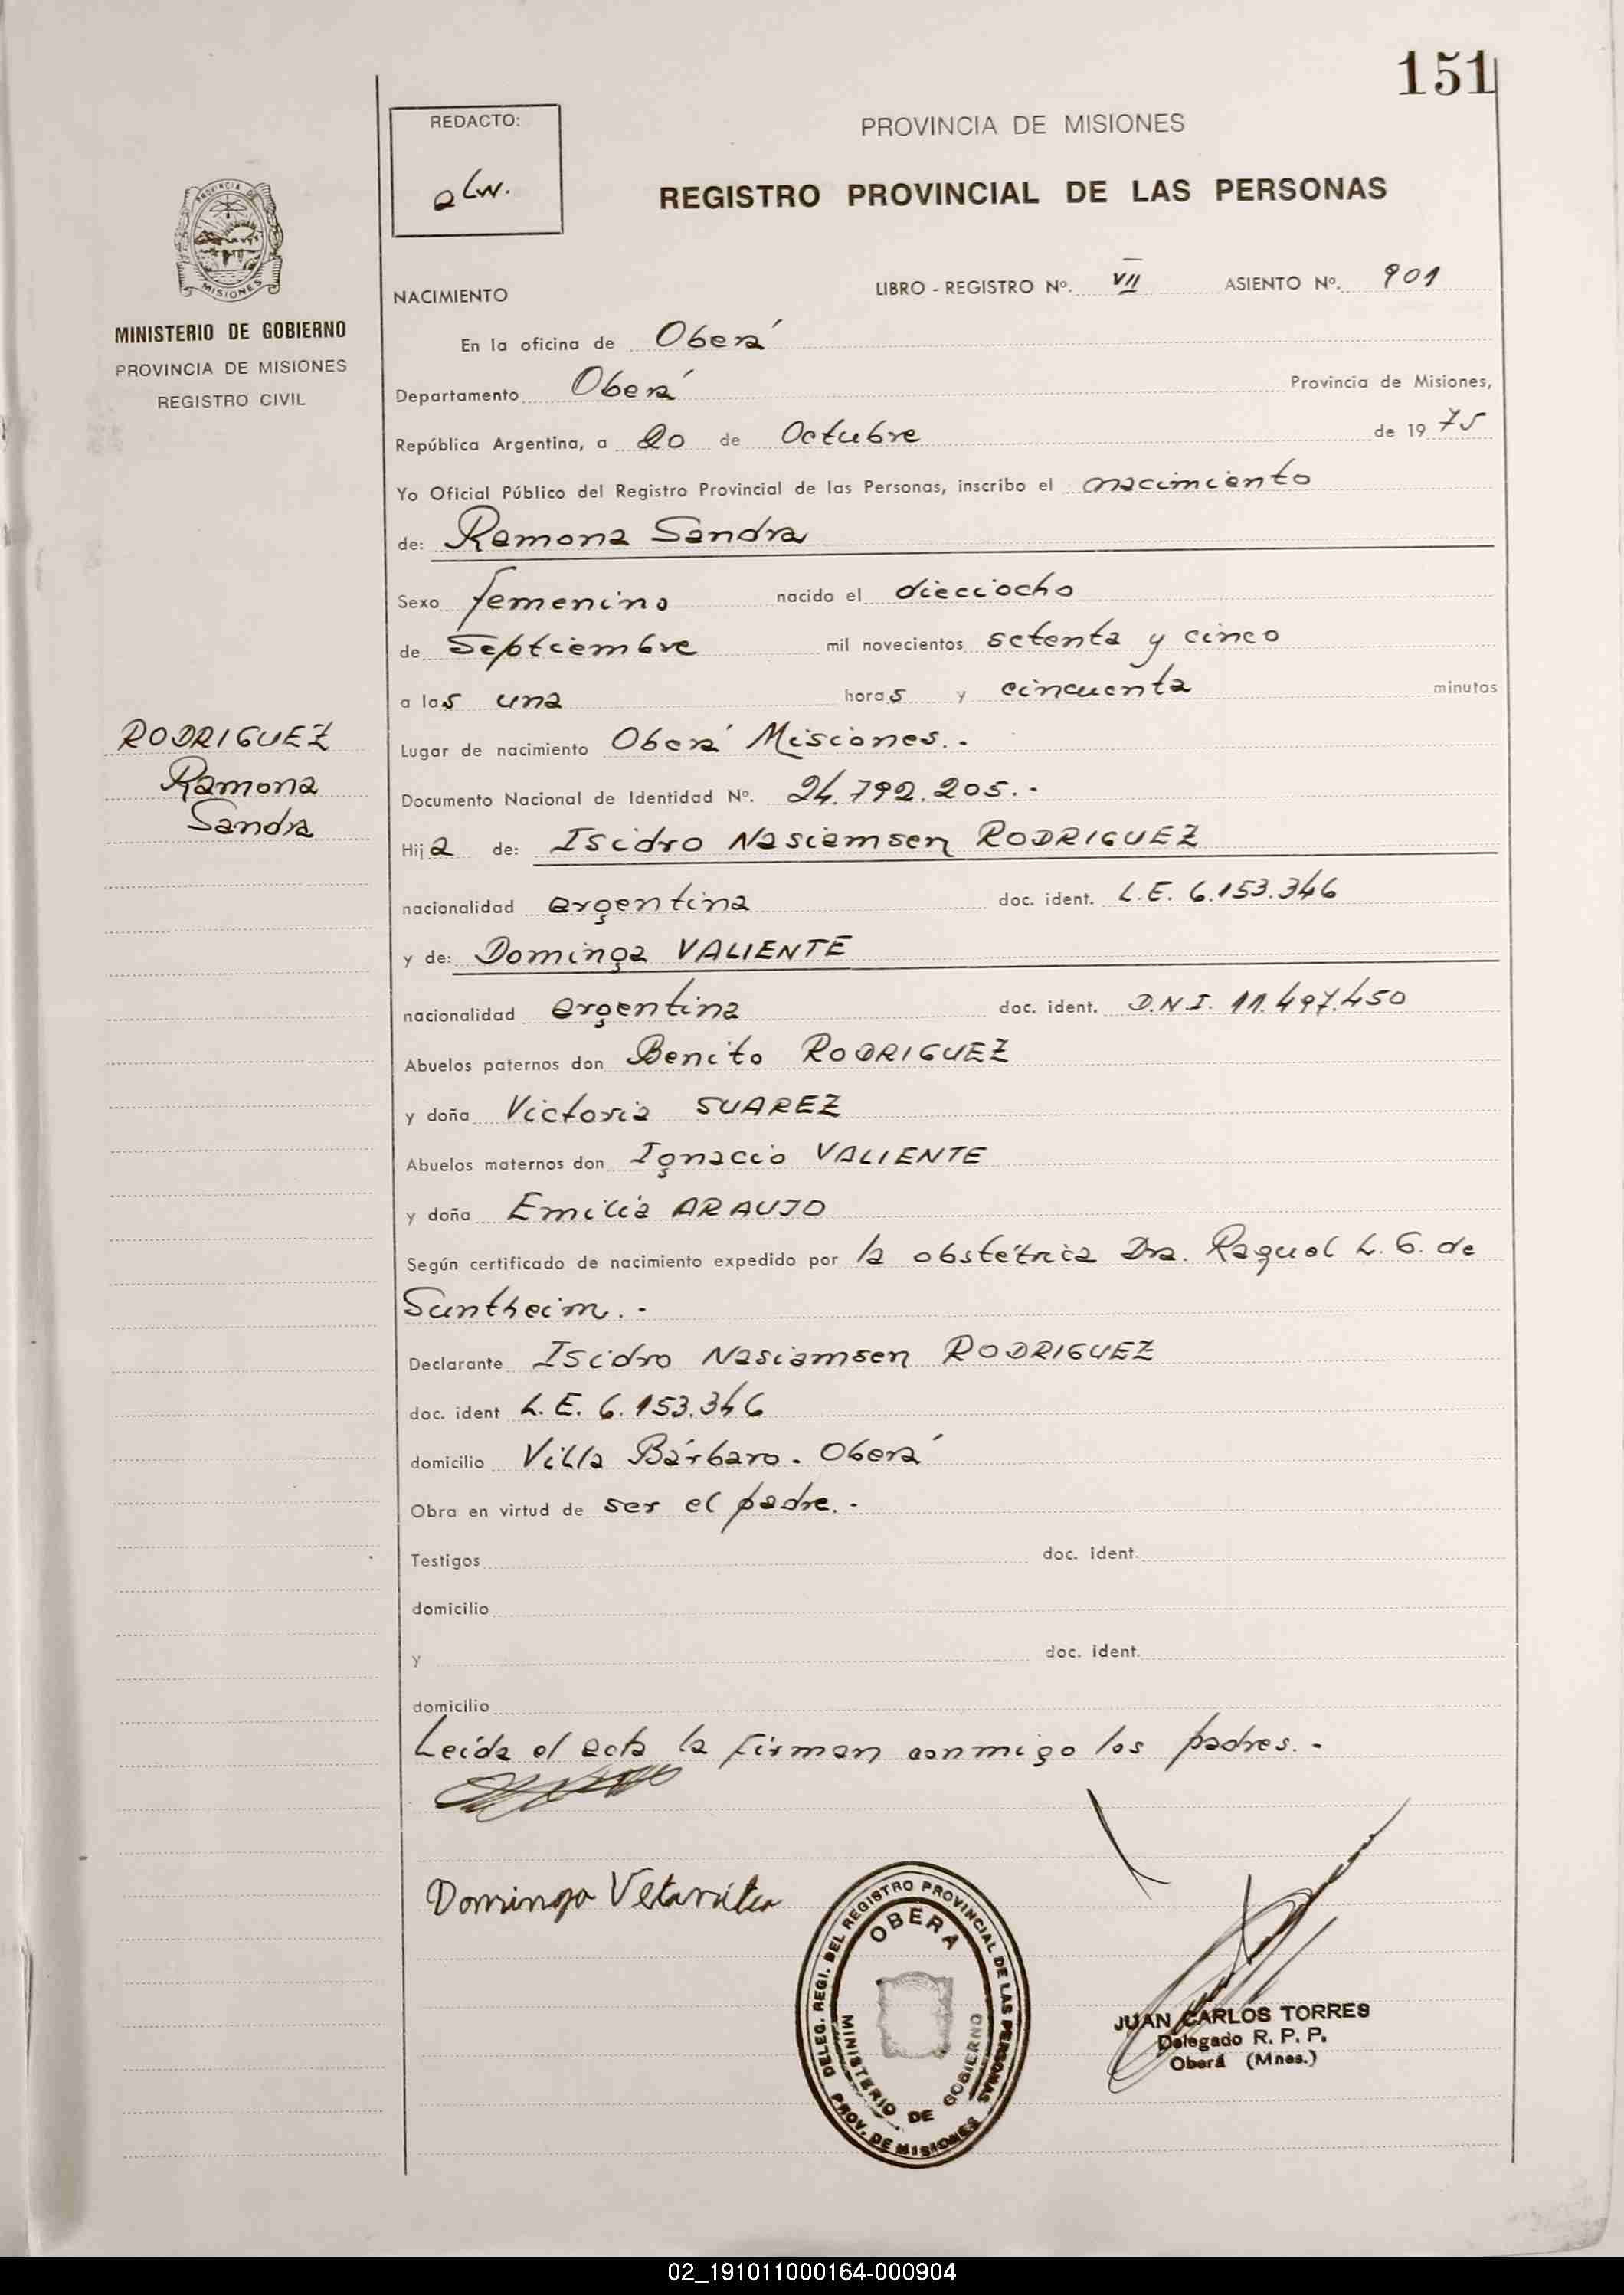 151
REDACTO:
PROVINCIA DE MISIONES
REGISTRO PROVINCIAL DE LAS PERSONAS
PROVINCIA DE
MISIONES
MINISTERIO DE GOBIERNO
PROVINCIA DE MISIONES
REGISTRO CIVIL
NACIMIENTO LIBRO - REGISTRO Nº. VII ASIENTO Nº. 901
En la oficina de Oberá
Departamento Oberá Provincia de Misiones,
República Argentina, a 20 de Octubre de 1975
Yo Oficial Público del Registro Provincial de las Personas, inscribo el nacimiento
de: Ramona Sandra
Sexo femenino nacido el dieciocho
de Septiembre mil novecientos setenta y cinco
a las una horas y cincuenta minutos
RODRIGUEZ
Ramona
Sandra
Lugar de nacimiento Oberá Misiones.-
Documento Nacional de Identidad Nº. 24.792.205.-
Hija de: Isidro Nasciamsen RODRIGUEZ
nacionalidad argentina doc. ident. L.E. 6.153.346
y de: Dominga VALIENTE
nacionalidad argentina doc. ident. D.N.I. 11.497.450
Abuelos paternos don Benito RODRIGUEZ
y doña Victoria SUAREZ
Abuelos maternos don Ignacio VALIENTE
y doña Emilia ARAUJO
Según certificado de nacimiento expedido por la obstétrica Dra. Raquel L. G. de
Suntheim.-
Declarante Isidro Nasciamsen RODRIGUEZ
doc. ident L.E. 6.153.346
domicilio Villa Bárbaro. Oberá
Obra en virtud de ser el padre.-
Testigos doc. ident.
domicilio
y doc. ident.
domicilio
Leída el acta la firman conmigo los padres.-
Dominga
DELEG. REGI. DEL REGISTRO PROVINCIAL DE LAS PERSONAS
OBERA
MINISTERIO DE GOBIERNO
PROV. DE MISIONES
JUAN CARLOS TORRES
Delegado R. P. P.
Oberá (Mnes.)
02_191011000164-000904